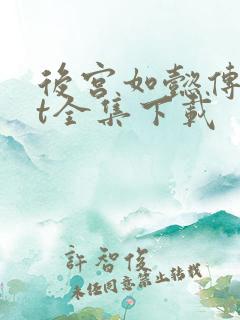 後宮如懿傳
t全集下載
許智俊
未經同意禁止轉載